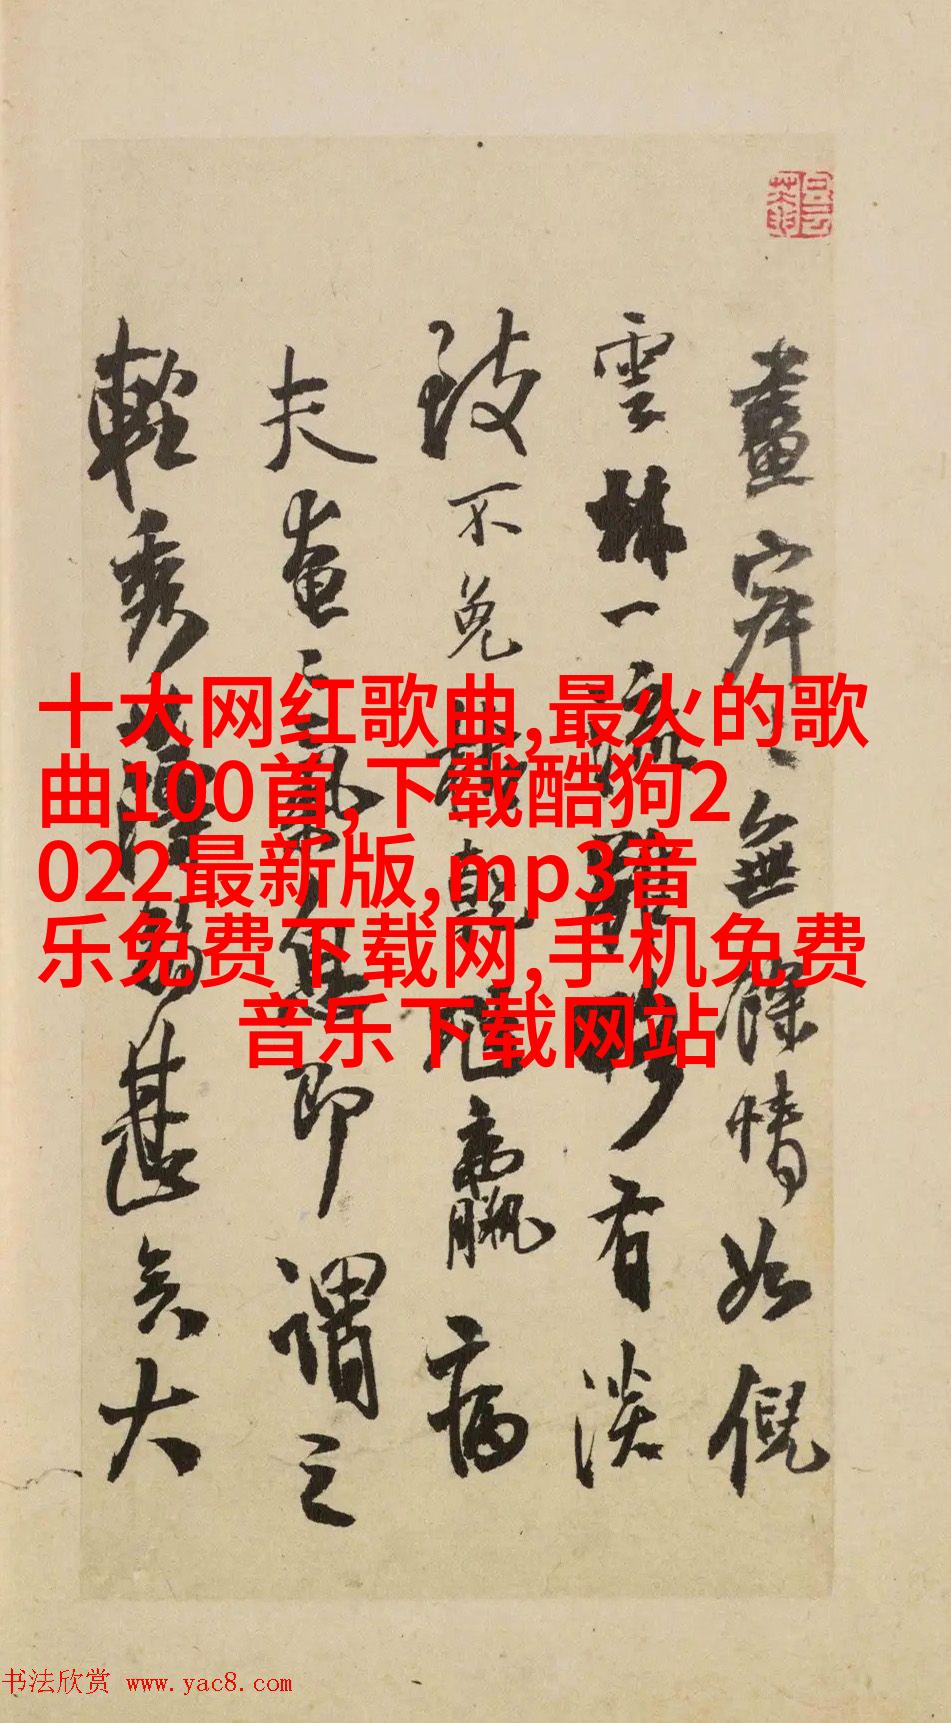 十大网红歌曲,最火的歌
曲100首,下载酷狗2
022最新版,mp3音
乐免费下载网,手机免费
音乐下载网站
畫寂無餘情如倪
雲林一疏有淡
致不免羸病
夫畫氣息即謂之
輕秀薄弱甚矣大
书法欣赏 www.yac8.com